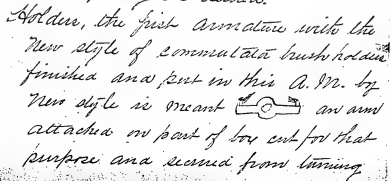 Holder, the first armature with the
new style of commutator brush holder
finished and put in this A.M. by
new style is meant an arm
attached on part of box cut for that
purpose and secured from turning